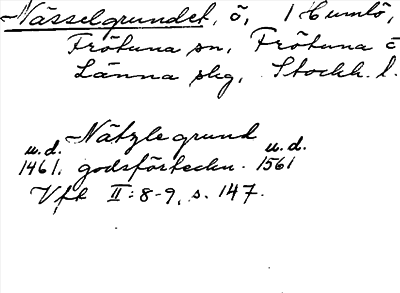 Nässelgrundet, ö, i Humlö,
Frötuna sn, Frötuna o
Länna skg, Stockh. l.
Nätzle grund
u.d. u.d.
1461. godsförteckn. 1561
Vfk II:8-9, s. 147.